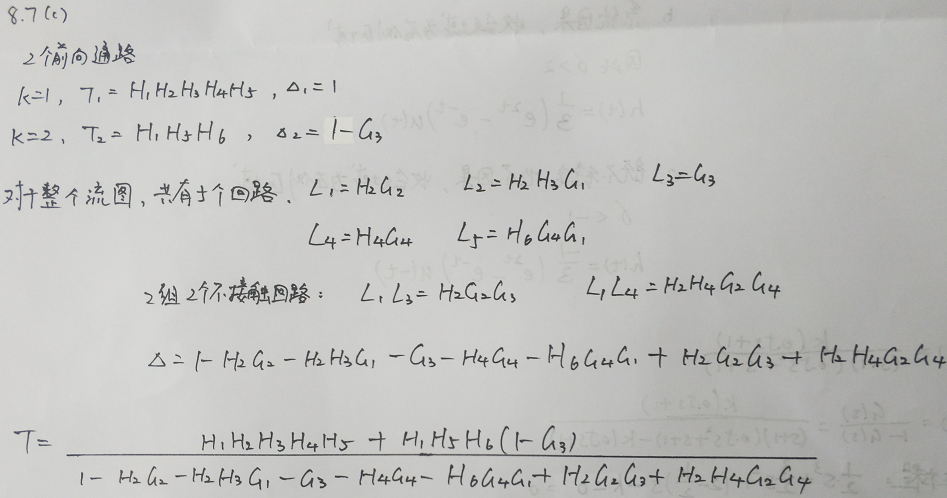 8.7(c)
2个前向通路
k=1, T₁=H₁H₂H₃H₄H₅, Δ₁=1
k=2, T₂=H₁H₅H₆, Δ₂=1-G₃
对于整个流图,共有5个回路. L₁=H₂G₂ L₂=H₂H₃G₁ L₃=G₃
L₄=H₄G₄ L₅=H₆G₄G₁
2组2个不接触回路: L₁L₃=H₂G₂G₃ L₁L₄=H₂H₄G₂G₄
Δ=1-H₂G₂-H₂H₃G₁-G₃-H₄G₄-H₆G₄G₁+H₂G₂G₃+H₂H₄G₂G₄
T= H₁H₂H₃H₄H₅+H₁H₅H₆(1-G₃)
1-H₂G₂-H₂H₃G₁-G₃-H₄G₄-H₆G₄G₁+H₂G₂G₃+H₂H₄G₂G₄